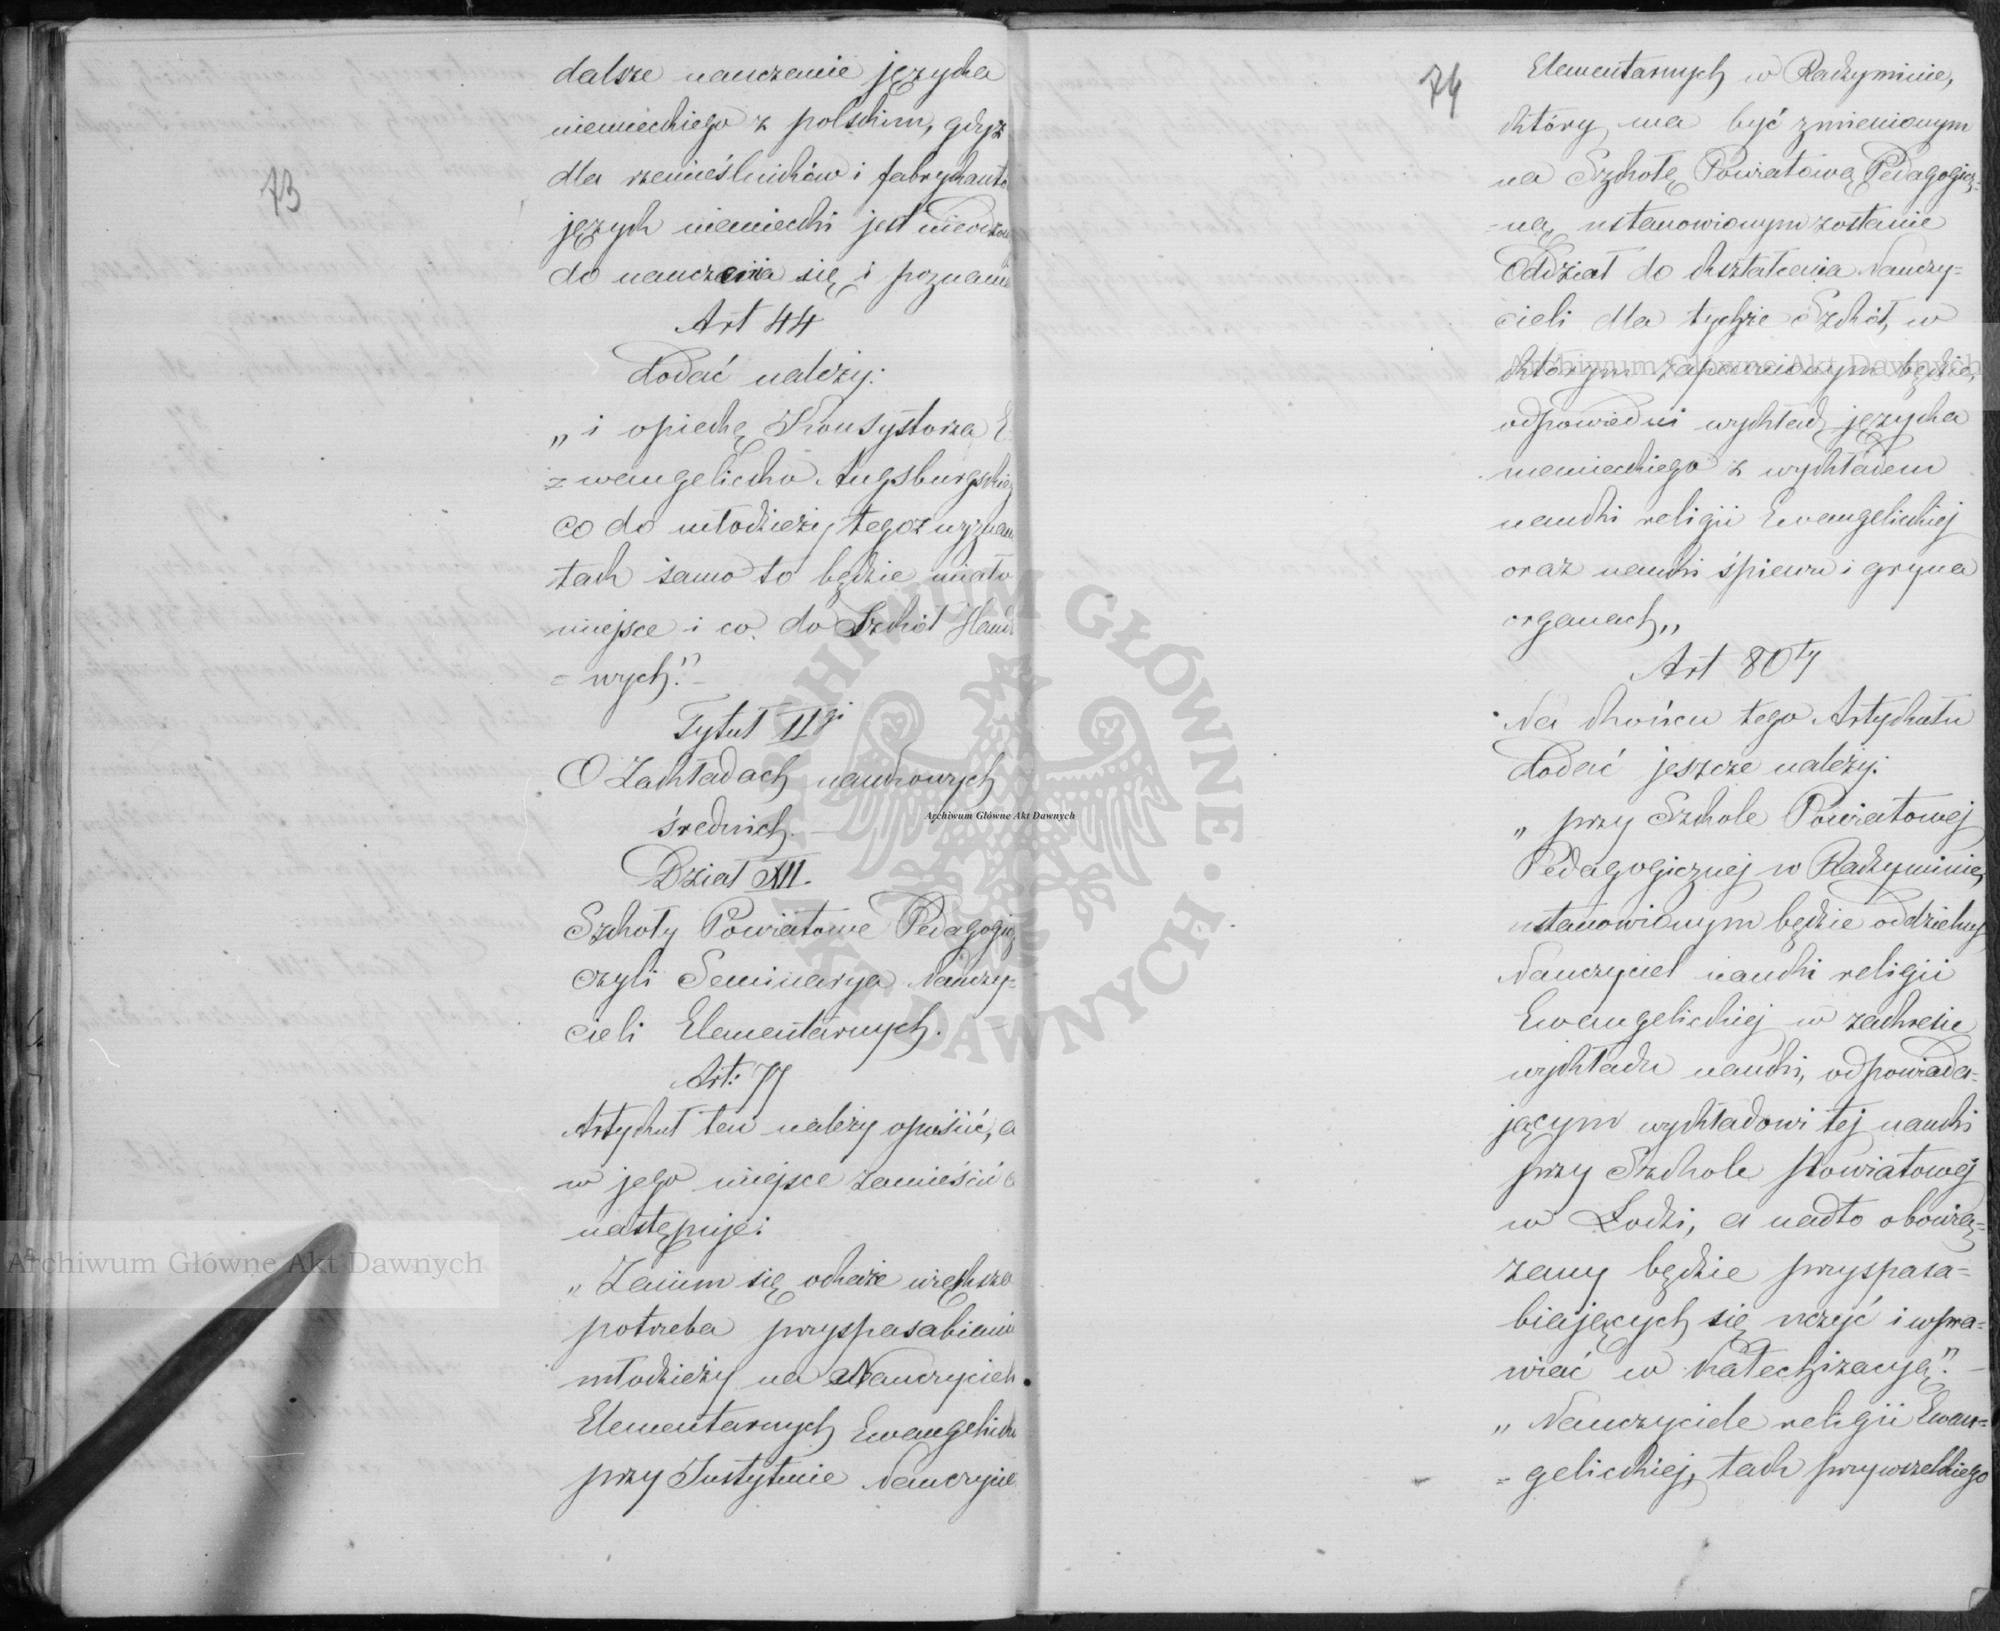 73
dalsze nauczanie języka
niemieckiego z polskim, gdyż
dla rzemieślników i fabrykantó
język niemiecki jest
do nauczenia się i poznani
Art 44
dodać należy:
„i opiekę Konsystorza E
=wangelicko Augsburgskieg
co do młodzieży tegoż wyznan
tak samo to będzie miało
miejsce i co do Szkół Hand
=wych."
Tytuł IIgi
O Zakładach naukowych
średnich.—
Dział XII.
Szkoły Powiatowe Pedagogicz
czyli Seminarya Nauczy=
cieli Elementarnych.—
Art: 77
Artykuł ten należy opuścić, a
w jego miejsce zamieścić
następuje:
„Zanim się okaże większa
potrzeba przyspasabiani
młodzieży na Nauczycieli
Elementarnych Ewangelick
przy Instytucie Nauczyciel
74
Elementarnych w Radzyminie,
który, ma być zmienionym
na Szkołę Powiatową Pedagogicz=
=ną, ustanowionym zostanie
Oddział do kształcenia Nauczy=
cieli dla tychże Szkół, w
którym zapewnionym będzie,
odpowiedni wykład języka
niemieckiego z wykładem
nauki religii Ewangelickiej
oraz nauki śpiewu i gry na
organach„
Art 80ty
Na końcu tego Artykułu
dodać jeszcze należy:
„przy Szkole Powiatowej
Pedagogicznej w Radzyminie,
ustanowionym będzie oddzielny
Nauczyciel nauki religii
Ewangelickiej w zakresie
wykładu nauki, odpowiada=
jącym wykładowi tej nauki
przy Szkole Powiatowej
w Łodzi, a nadto obowią=
zany będzie przyspasa=
biających się uczyć i wpra=
wiać w katechizacyą".—
„Nauczyciele religii Ewan=
=gelickiej, tak przy wszelkiego
Archiwum Główne Akt Dawnych
Archiwum Główne Akt Dawnych
Archiwum Główne Akt Dawnych
ARCHIWUM GŁÓWNE · AKT DAWNYCH ·